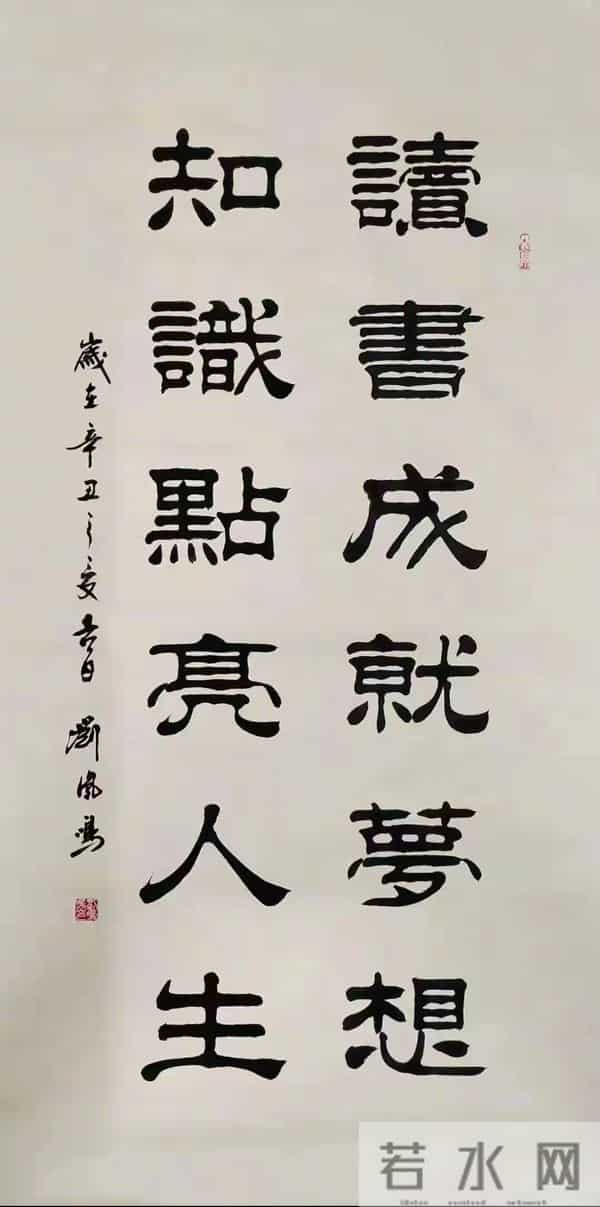 讀書成就夢想
知識點亮人生
歲在辛丑之夏吉日 劉鳳鳴
若水网